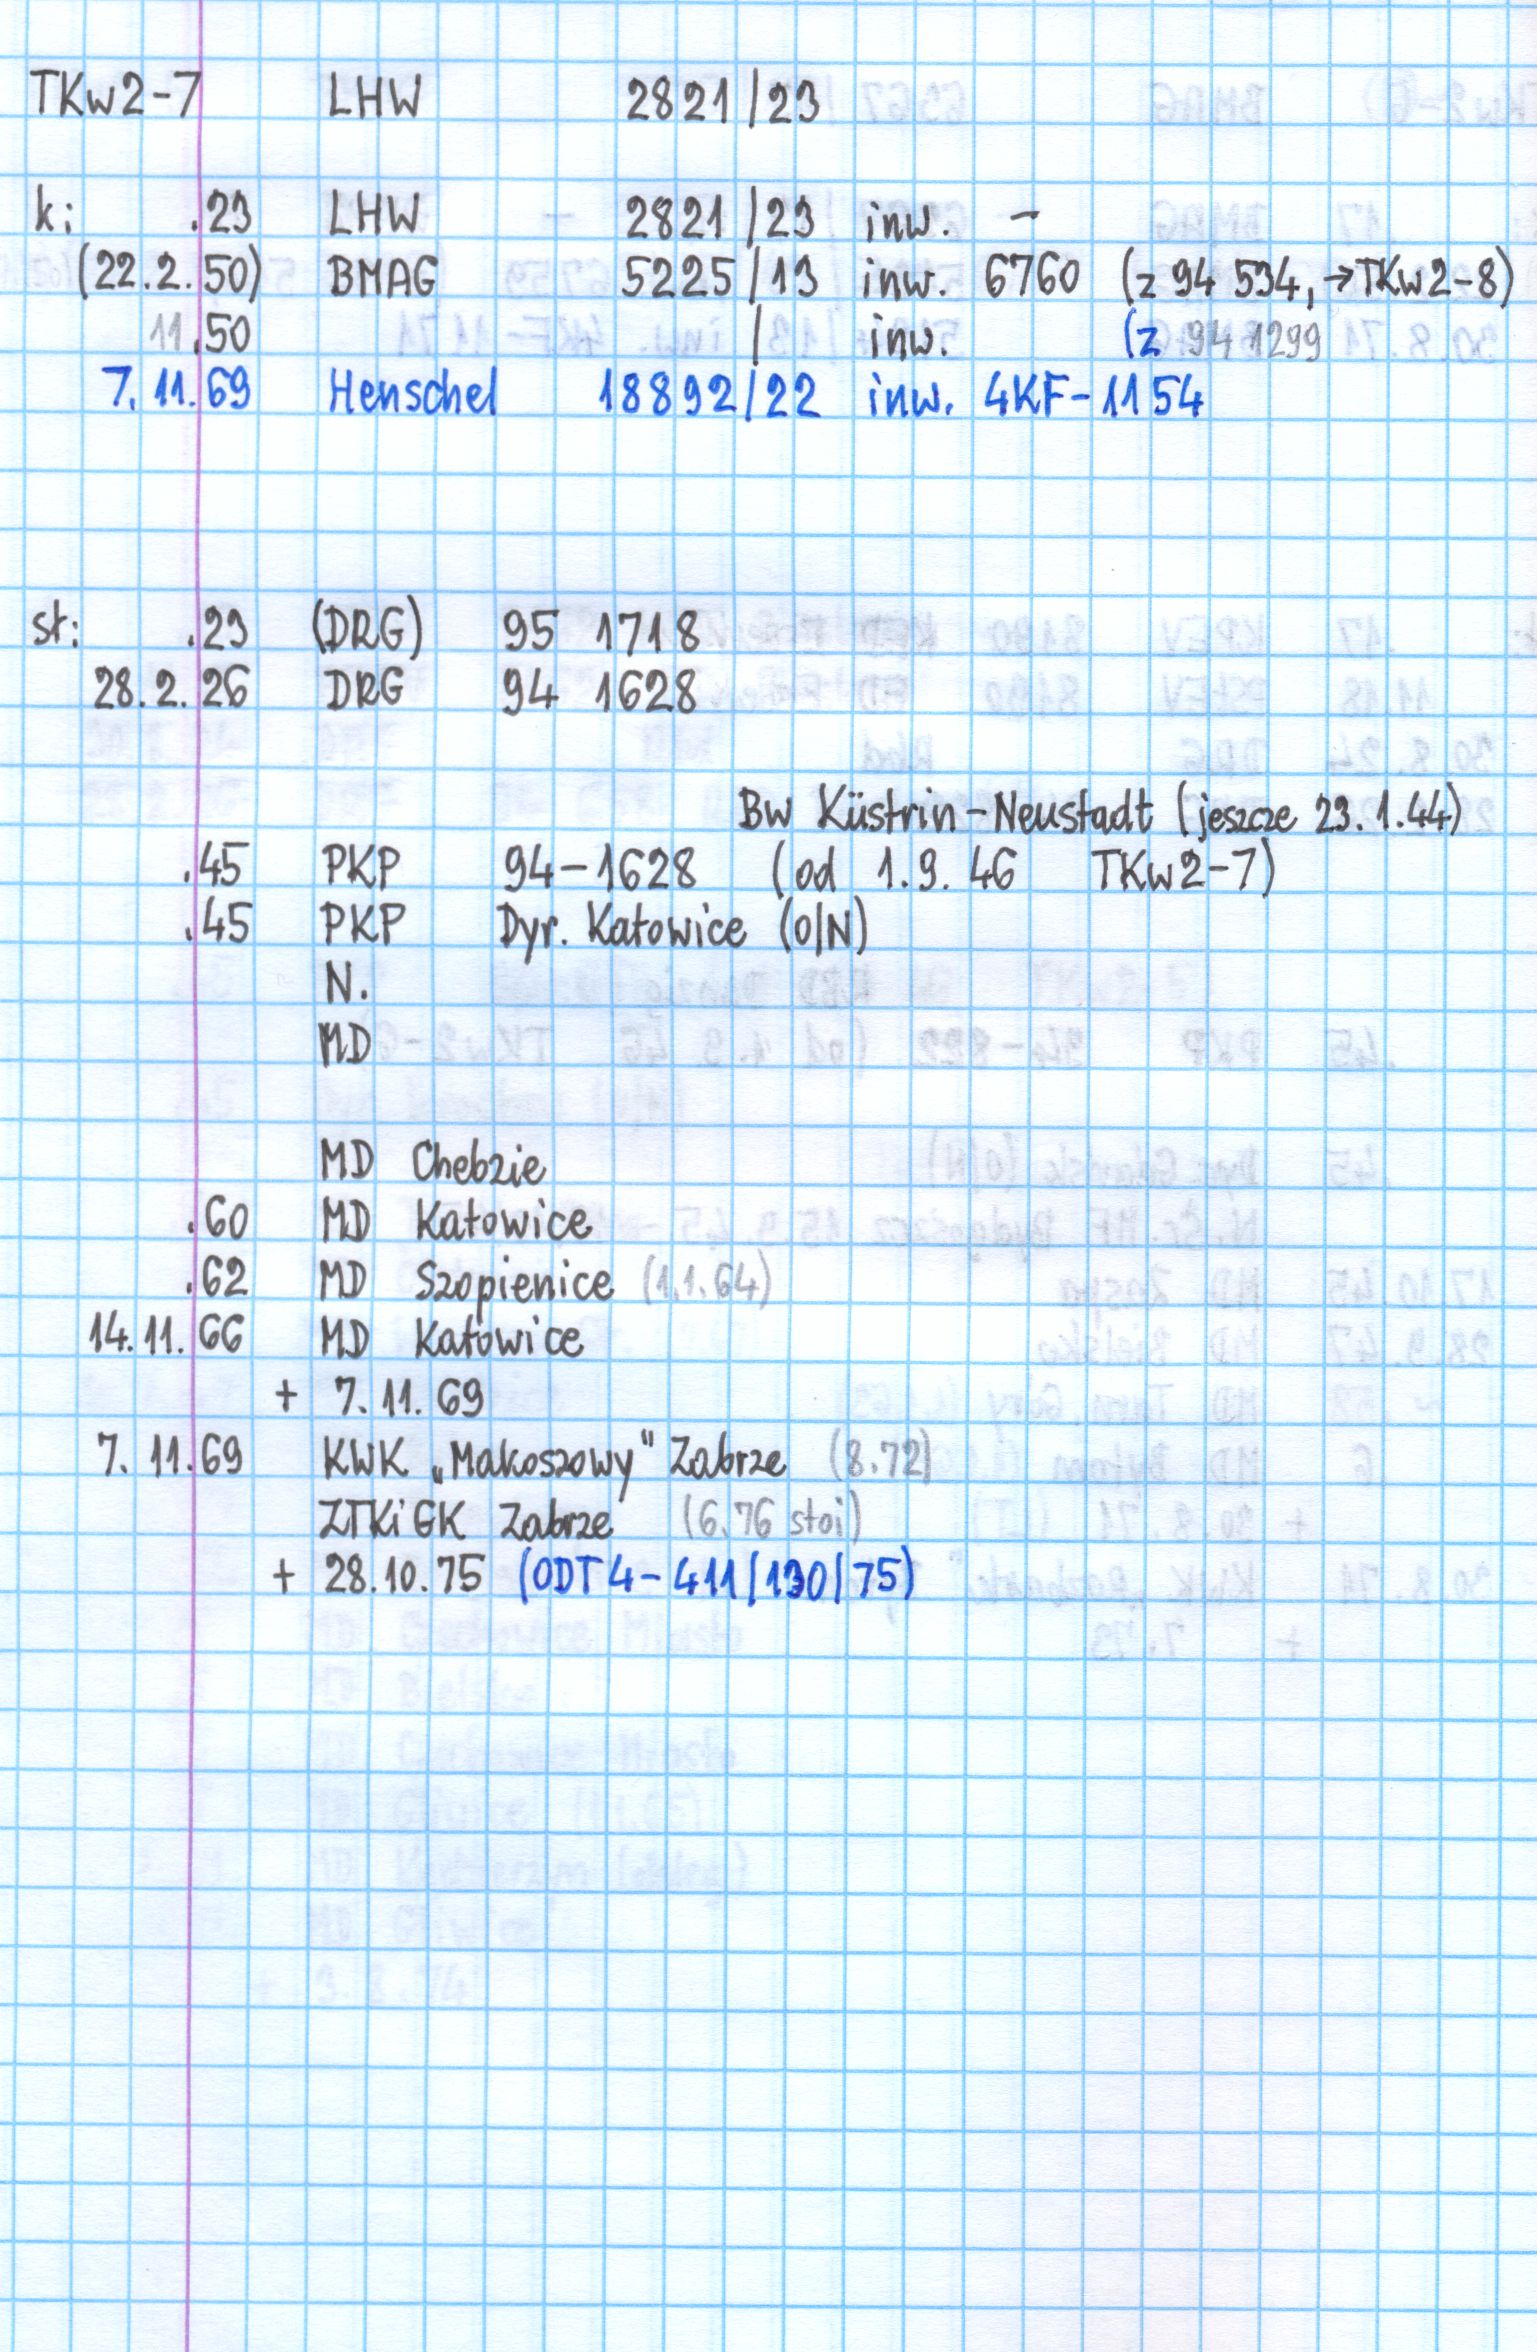 TKw2-7 LHW 2821/23
k: .23 LHW 2821/23 inw. -
(22.2.50) BMAG 5225/13 inw. 6760 (z 94 534, →TKw2-8)
11.50 / inw. (z 94 1299
7.11.69 Henschel 18892/22 inw. 4KF-1154
st: .23 (DRG) 95 1718
28.2.26 DRG 94 1628
Bw Küstrin-Neustadt (jeszcze 23.1.44)
.45 PKP 94-1628 (od 1.9.46 TKw2-7)
.45 PKP Dyr. Katowice (O/N)
N.
MD
MD Chebzie
.60 MD Katowice
.62 MD Szopienice (1.1.64)
14.11.66 MD Katowice
+ 7.11.69
7.11.69 KWK „Makoszowy" Zabrze (8.72)
ZTKiGK Zabrze (6.76 stoi)
+ 28.10.75 (ODT4-411/130/75)